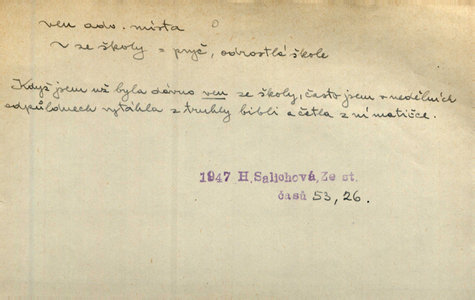 ven adv. místa
v ze školy = pryč, odrostlé škole
Když jsem už byla dávno ven ze školy, často jsem v nedělních
odpůldnech vytáhla z truhly bibli a četla z ní matičce.
1947 H.Salichová, Ze st.
časů 53, 26.